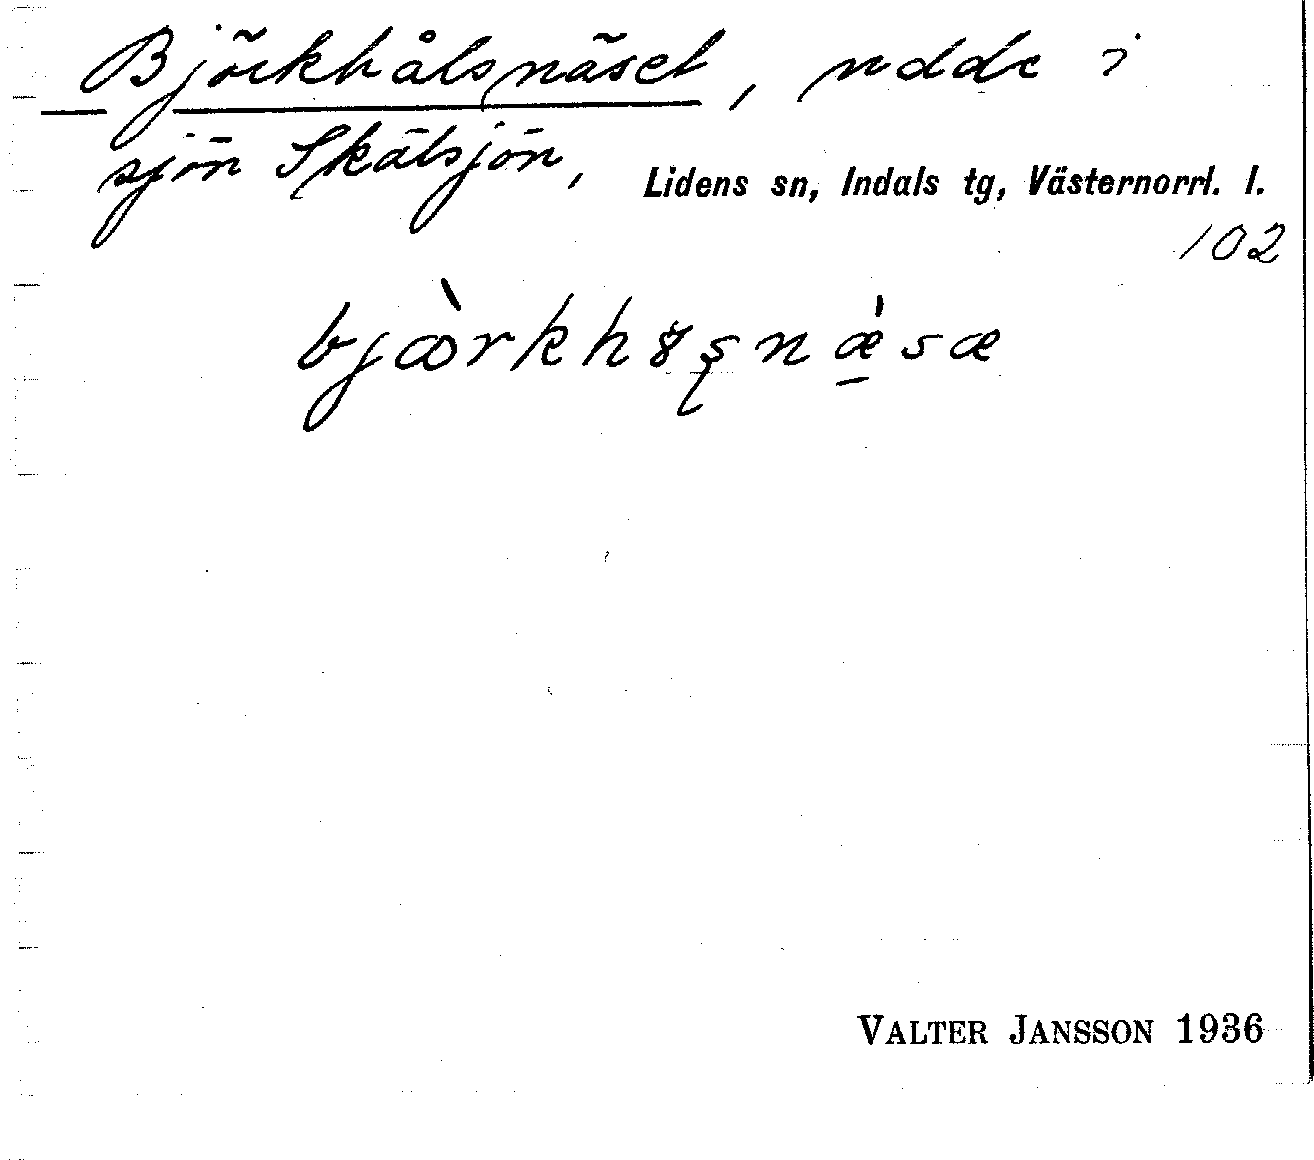 Björkhålsnäset, udde i
sjön Skälsjön, Lidens sn, Indals tg, Västernorrl. l.
102
VALTER JANSSON 1936